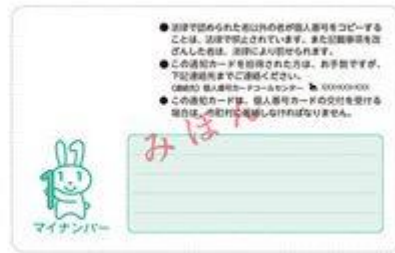 ●法律で認められた者以外の者が個人番号をコピーする
ことは、法律で禁止されています。また記載事項を改
ざんした者は、法律により罰せられます。
●この通知カードを拾得された方は、お手数ですが、
下記連絡先までご連絡ください。
(連絡先) 個人番号カードコールセンター XXX-XXX-XXX
●この通知カードは、個人番号カードの交付を受ける
場合は、市町村に返納しなければなりません。
みほん
マイナンバー